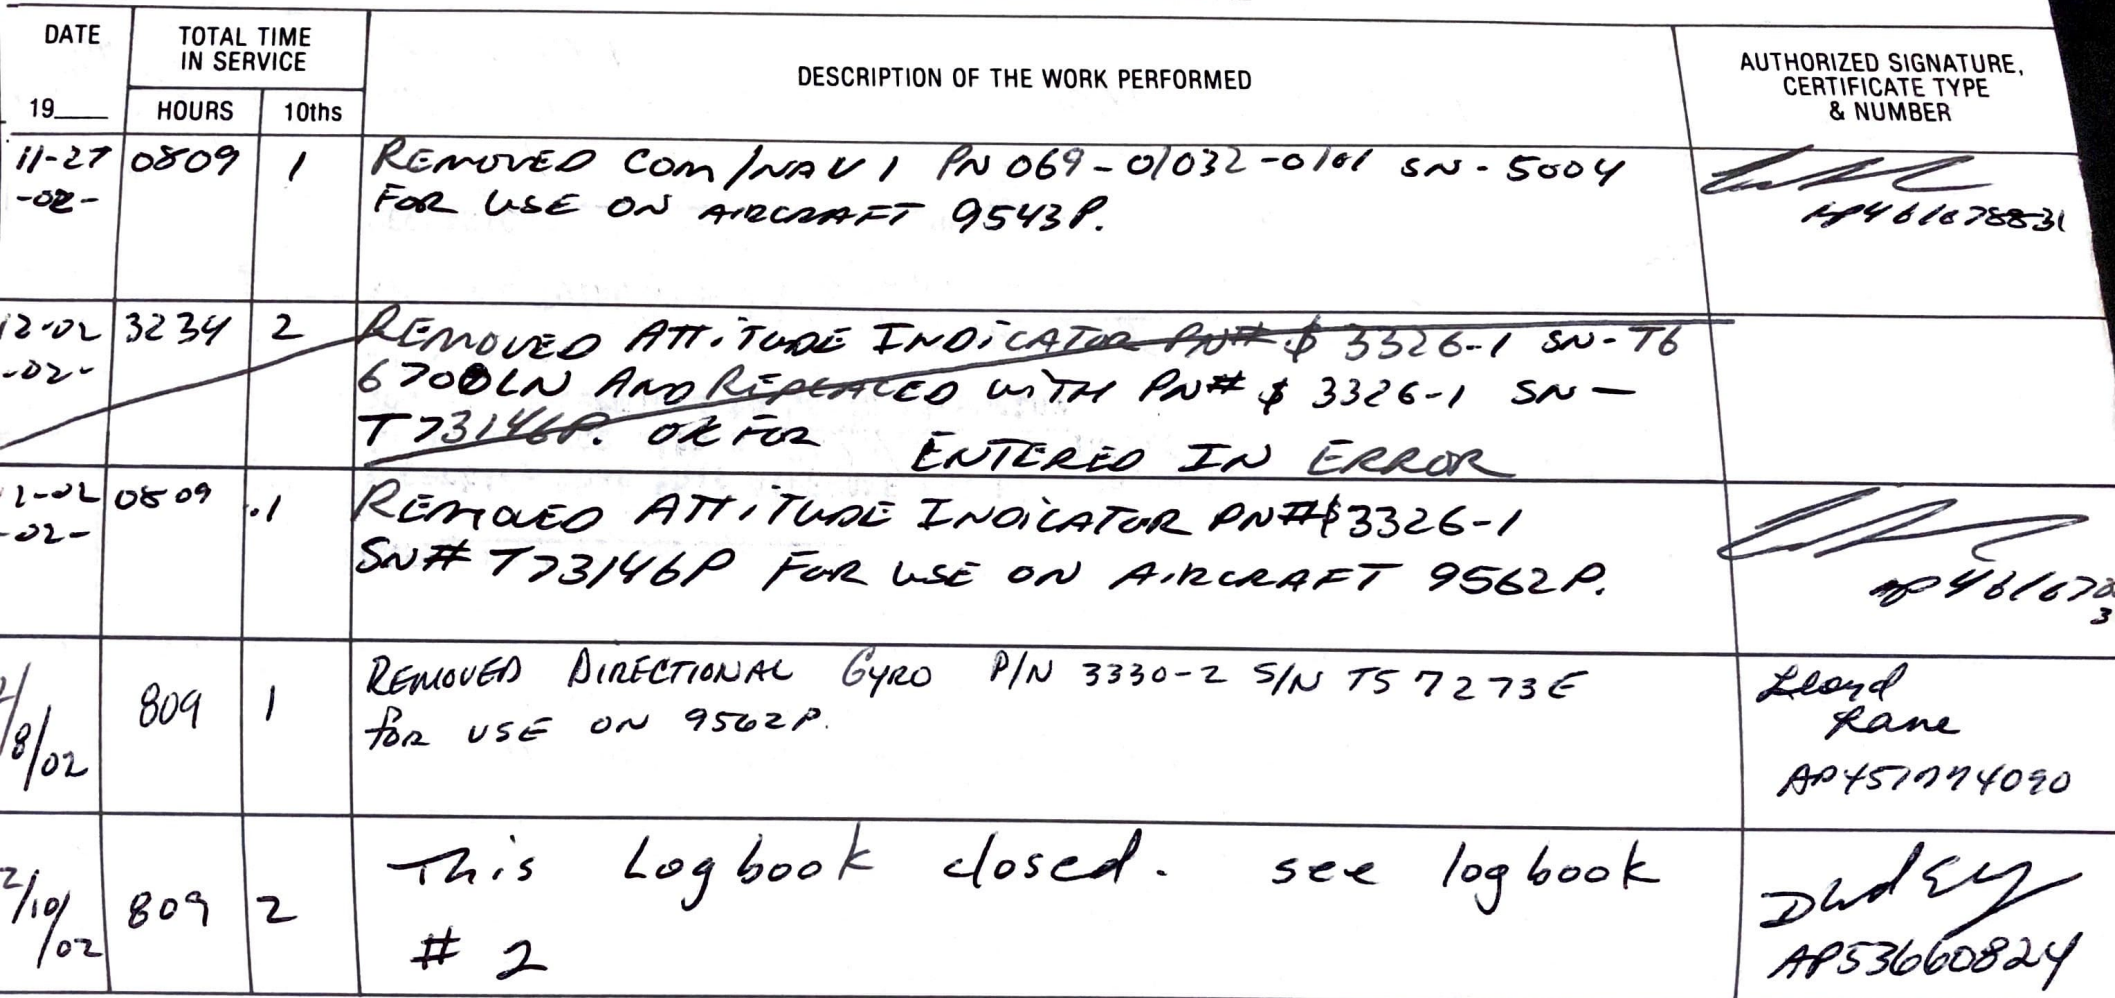 DATE
TOTAL TIME
IN SERVICE
DESCRIPTION OF THE WORK PERFORMED
AUTHORIZED SIGNATURE,
CERTIFICATE TYPE
& NUMBER
19
HOURS
10ths
11-27
-02-
0809
1
REMOVED COM/NAV 1 PN 069-01032-0101 SN-5004
FOR USE ON AIRCRAFT 9543P.
12-02
-02-
3234
2
REMOVED ATTITUDE INDICATOR PN# $ 3326-1 SN-T6
6700LN AND REPLACED WITH PN# $ 3326-1 SN-
T73146P. OK FOR
ENTERED IN ERROR
2-02
-02-
0809
.1
REMOVED ATTITUDE INDICATOR PN#$3326-1
SN# T73146P FOR USE ON AIRCRAFT 9562P.
/8/02
809
1
REMOVED DIRECTIONAL GYRO P/N 3330-2 S/N T57273E
for USE ON 9562P.
Lloyd
Rane
2/10/02
809
2
This Logbook closed. see logbook
# 2
AP53660824